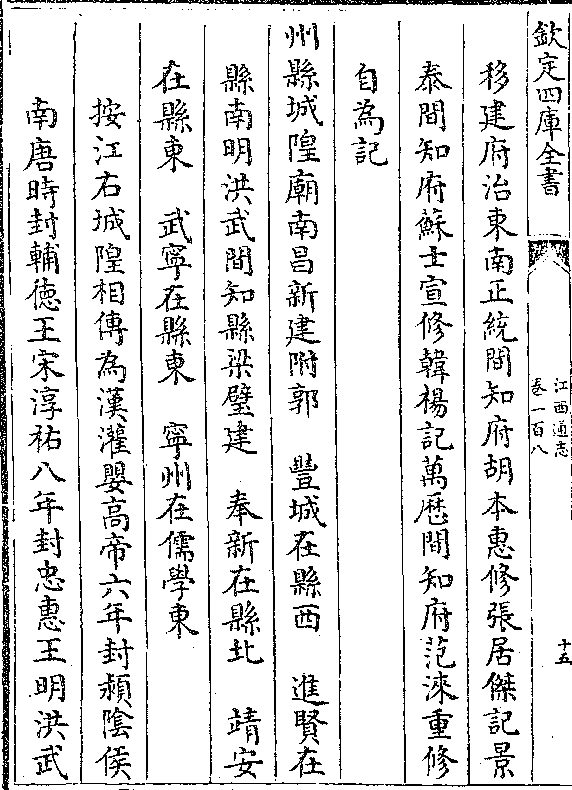 欽定四庫全書
江西通志
卷一百八
十五
移建府治東南正統間知府胡本惠修張居傑記景
泰間知府蘇士宣修韓楊記萬歷間知府范淶重修
自為記
州縣城隍廟南昌新建附郭　豐城在縣西　進賢在
縣南明洪武間知縣梁璧建　奉新在縣北　靖安
在縣東　武寧在縣東　寧州在儒學東
按江右城隍相傳為漢灌嬰高帝六年封潁隂侯
南唐時封輔徳王宋淳祐八年封忠惠王明洪武